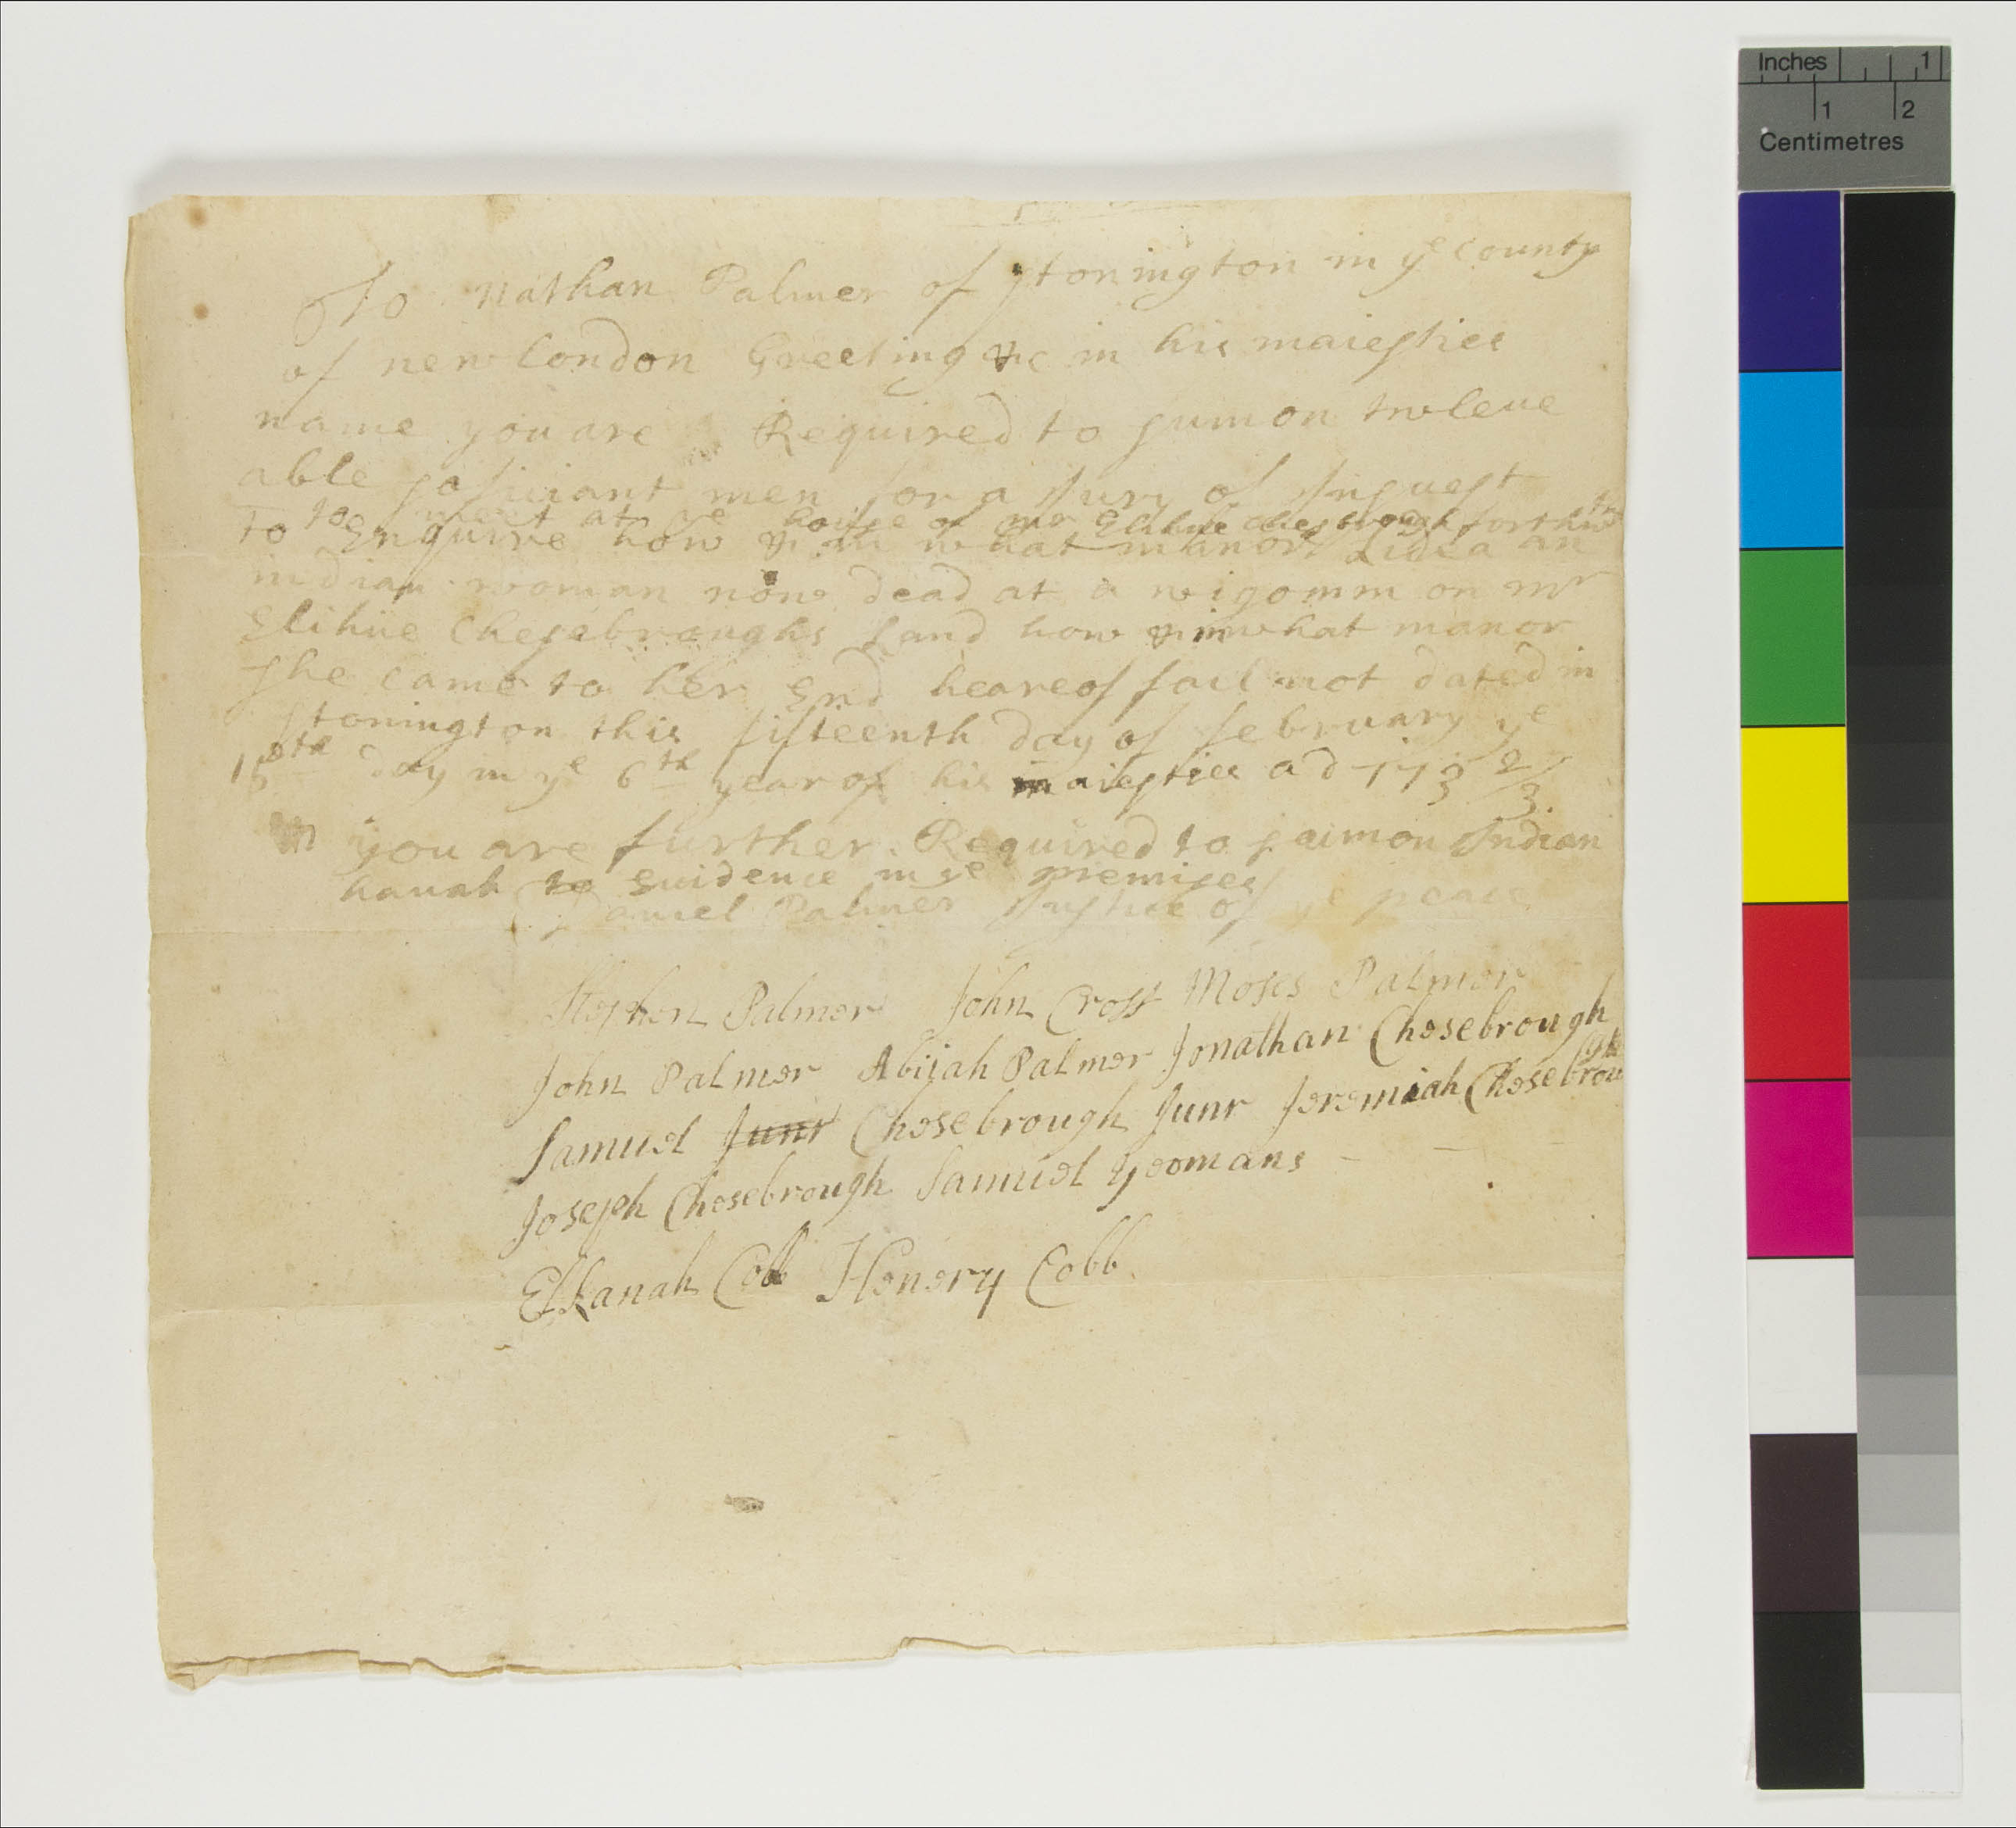 To Nathan Palmer of stonington in ye County
of new london Greeting &c in his maiesties
name you are Required to sumon twleue
able sofiiciant men for a Jury of Inquest
to meet at ye house of mr Elihue chesbrough forthwth
To Enquire how & in what manor Lidea an
indian woman now dead at a wigomm on mr
Elihue Chesebroughs Land how & in what manor
she came to her End heareof fail not dated in
stonington this fifteenth day of february ye
15th day in ye 6th year of his maiesties ad 1732/3.
you are further Required to sumon Indian
hanah to Euidence in ye premises
Daniel Palmer Justice of ye peace
Stephen Palmer John Cross Moses Palmer
John Palmer Abijah Palmer Jonathan Chesebrough
Samuel Junr Chesebrough Junr Jeremiah Chesebrough
Joseph Chesebrough Samuel Yeomans
Elkanah Cobb Henery Cobb
Inches 1
1 2
Centimetres